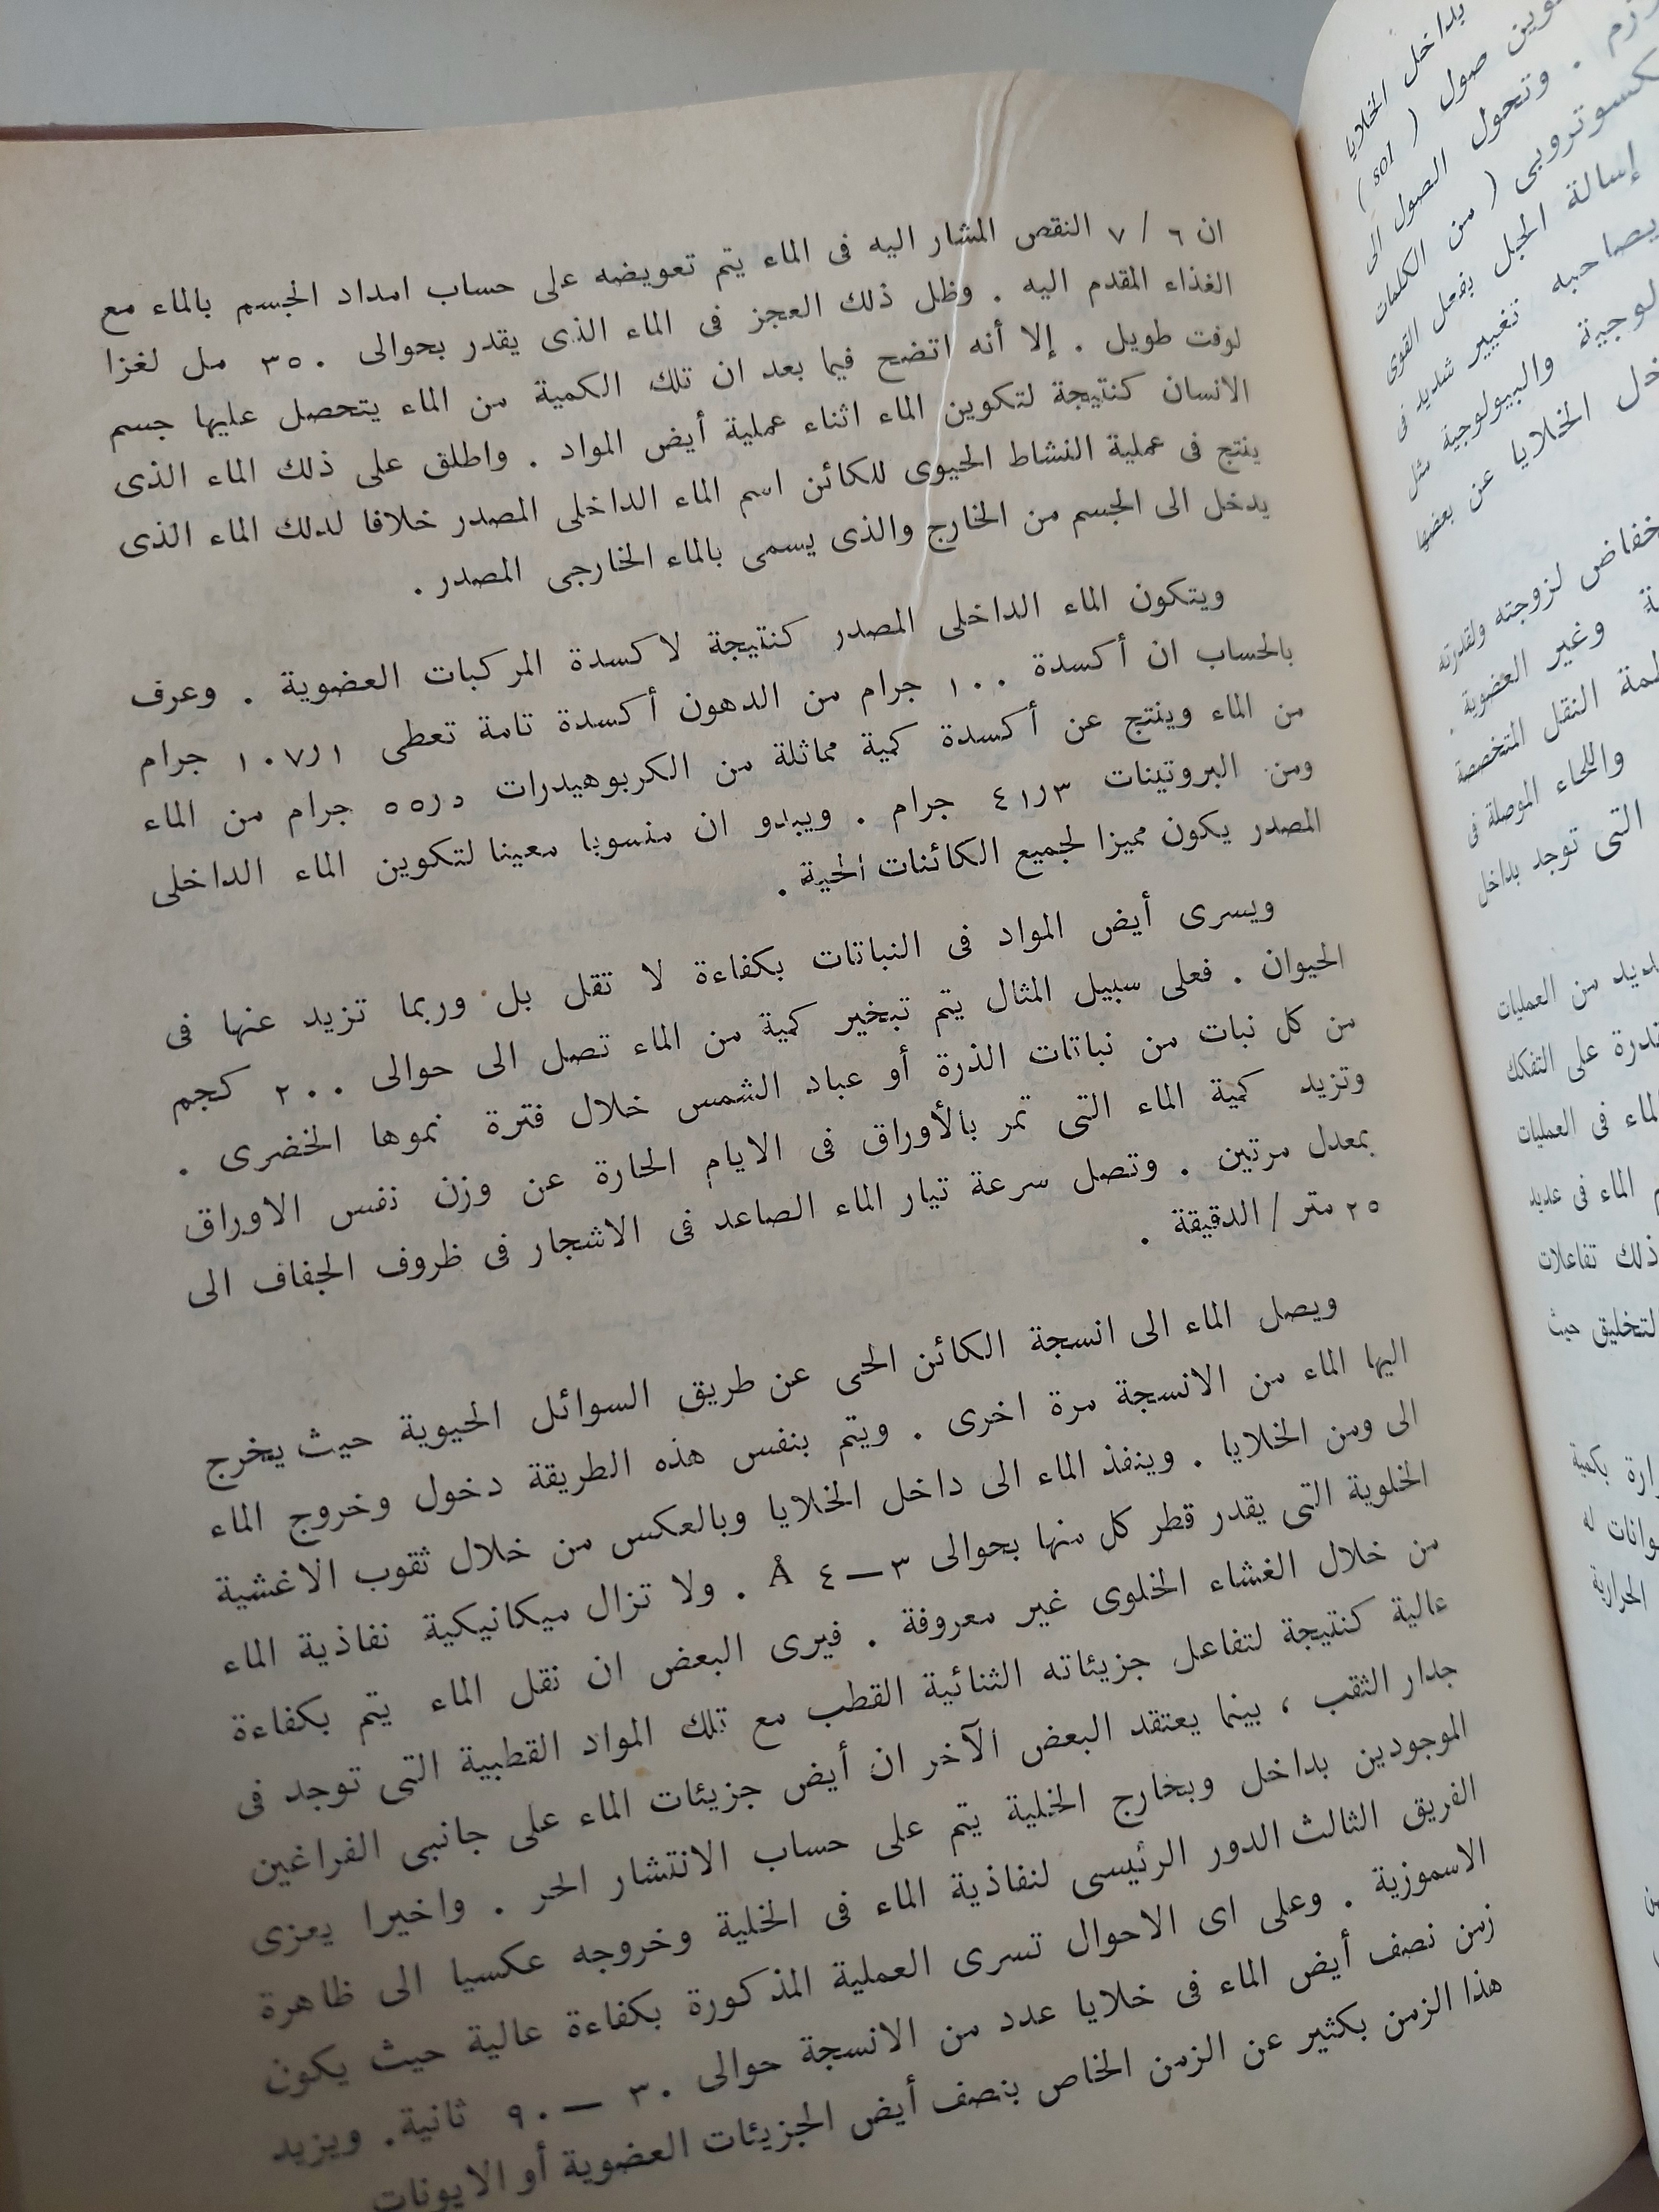 ان ٦ / ٧ النقص المشار اليه فى الماء يتم تعويضه على حساب امداد الجسم بالماء مع
الغذاء المقدم اليه . وظل ذلك العجز فى الماء الذى يقدر بحوالى ٣٥٠ مل لغزا
لوقت طويل . إلا أنه اتضح فيما بعد ان تلك الكمية من الماء يتحصل عليها جسم
الانسان كنتيجة لتكوين الماء اثناء عملية أيض المواد . واطلق على ذلك الماء الذى
ينتج فى عملية النشاط الحيوى للكائن اسم الماء الداخلى المصدر خلافا لذلك الماء الذى
يدخل الى الجسم من الخارج والذى يسمى بالماء الخارجى المصدر .
ويتكون الماء الداخلى المصدر كنتيجة لاكسدة المركبات العضوية . وعرف
بالحساب ان أكسدة ١٠٠ جرام من الدهون أكسدة تامة تعطى ١ر١٠٧ جرام
من الماء وينتج عن أكسدة كمية مماثلة من الكربوهيدرات ٥ر٥٥ جرام من الماء
ومن البروتينات ٣ر٤١ جرام . ويبدو ان منسوبا معينا لتكوين الماء الداخلى
المصدر يكون مميزا لجميع الكائنات الحية .
ويسرى أيض المواد فى النباتات بكفاءة لا تقل بل وربما تزيد عنها فى
الحيوان . فعلى سبيل المثال يتم تبخير كمية من الماء تصل الى حوالى ٢٠٠ كجم
من كل نبات من نباتات الذرة أو عباد الشمس خلال فترة نموها الخضرى .
وتزيد كمية الماء التى تمر بالأوراق فى الايام الحارة عن وزن نفس الاوراق
بمعدل مرتين . وتصل سرعة تيار الماء الصاعد فى الاشجار فى ظروف الجفاف الى
٢٥ متر / الدقيقة .
ويصل الماء الى انسجة الكائن الحى عن طريق السوائل الحيوية حيث يخرج
اليها الماء من الانسجة مرة اخرى . ويتم بنفس هذه الطريقة دخول وخروج الماء
الى ومن الخلايا . وينفذ الماء الى داخل الخلايا وبالعكس من خلال ثقوب الاغشية
الخلوية التى يقدر قطر كل منها بحوالى ٣ — ٤ Å . ولا تزال ميكانيكية نفاذية الماء
من خلال الغشاء الخلوى غير معروفة . فيرى البعض ان نقل الماء يتم بكفاءة
عالية كنتيجة لتفاعل جزيئاته الثنائية القطب مع تلك المواد القطبية التى توجد فى
جدار الثقب ، بينما يعتقد البعض الآخر ان أيض جزيئات الماء على جانبى الفراغين
الموجودين بداخل وبخارج الخلية يتم على حساب الانتشار الحر . واخيرا يعزى
الفريق الثالث الدور الرئيسى لنفاذية الماء فى الخلية وخروجه عكسيا الى ظاهرة
الاسموزية . وعلى اى الاحوال تسرى العملية المذكورة بكفاءة عالية حيث يكون
زمن نصف أيض الماء فى خلايا عدد من الانسجة حوالى ٣٠ — ٩٠ ثانية . ويزيد
هذا الزمن بكثير عن الزمن الخاص بنصف أيض الجزيئات العضوية أو الايونات
بداخل الخلايا
صول ( sol )
وتحول الصول الى
( من الكلمات
إسالة الجبل بفعل القوى
يصاحبه تغيير شديد فى
والبيولوجية مثل
الخلايا عن بعضها
لزوجته ولقدرته
وغير العضوية
النقل المتخصصة
واللحاء الموصلة فى
التى توجد بداخل
من العمليات
على التفكك
فى العمليات
الماء فى عديد
ذلك تفاعلات
حيث
بكمية
له
الحرارية